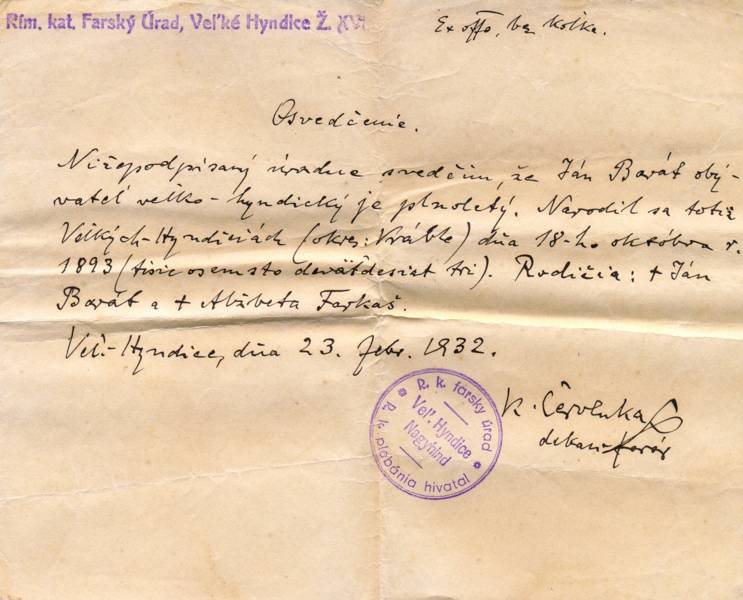 Rím. kat. Farský Úrad, Veľké Hyndice Ž. XVI
Ex offo, bez kolku.
Osvedčenie.
Nižepodpísaný úradne svedčím, že Ján Barát oby-
vateľ veľko-hyndický je plnoletý. Narodil sa totiž
Veľkých-Hyndiciách (okres: Vráble) dňa 18-ho októbra r.
1893 (tisíc osemsto deväťdesiat tri). Rodičia: + Ján
Barát a + Alžbeta Farkaš.
Veľ.-Hyndice, dňa 23. febr. 1932.
K. Červenka
dekan-farár
R. k. fársky úrad
Veľ. Hyndice
Nagyhind
R. k. plobánia hivatal